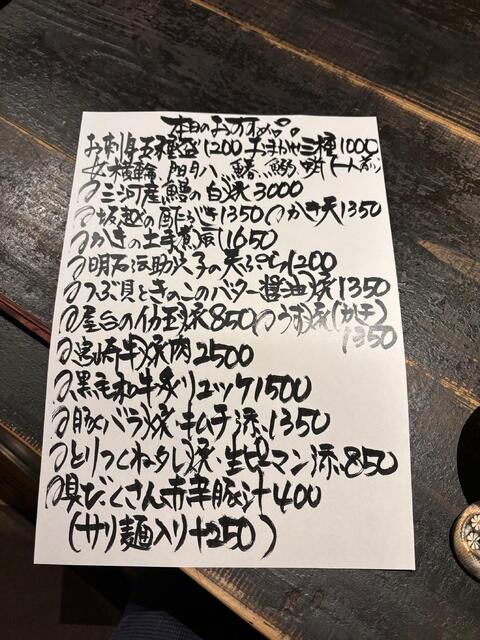 本日のおすすめ
お刺身五種盛1200 おまかせ三種1000
鰆 鰤 (一人前)
三河産鰻の白焼3000
坂越の酢がき1350 かき天1350
かきの土手煮風1650
明石浜助穴子の天ぷら1200
つぶ貝ときのこのバター醤油焼1350
屋台のイカ玉焼850 うす焼(かき)
1350
宮崎牛焼肉2500
黒毛和牛炙リユッケ1500
豚バラ焼・キムチ添1350
とりつくねタレ焼・生ピーマン添850
具だくさん赤辛豚汁400
(サリ麺入り+250)